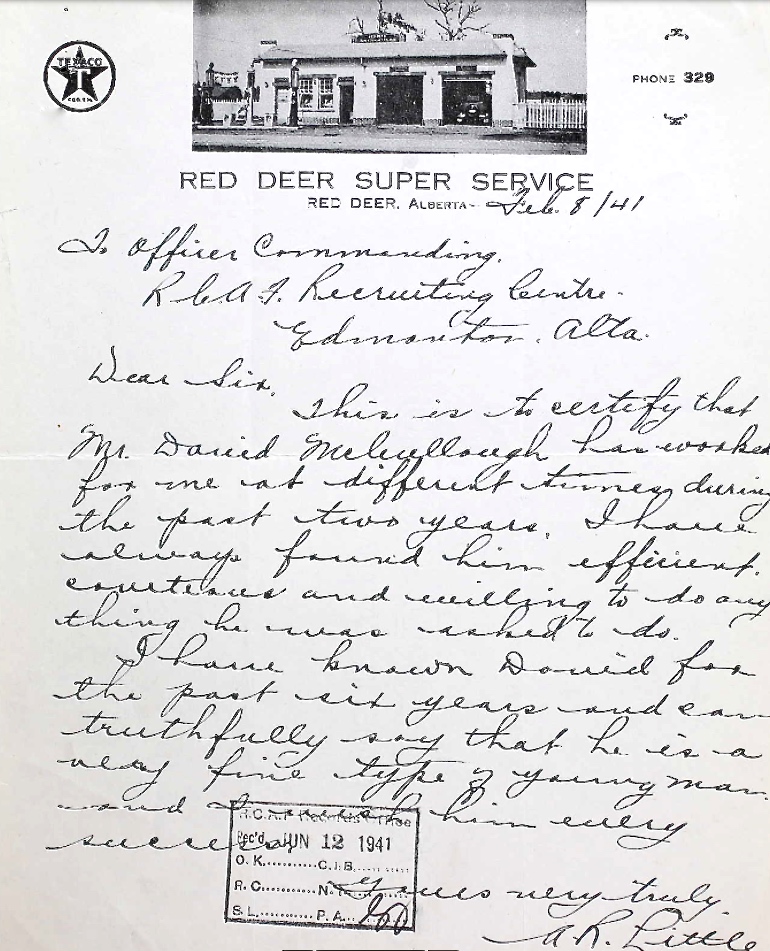 TEXACO
PHONE 329
RED DEER SUPER SERVICE
RED DEER, ALBERTA Feb. 8/41
To Officer Commanding,
R.C.A.F. Recruiting Centre.
Edmonton, Alta.
Dear Sir,
This is to certify that
Mr. David McCullough has worked
for me at different times during
the past two years. I have
always found him efficient,
courteous and willing to do any
thing he was asked to do.
I have known David for
the past six years and can
truthfully say that he is a
very fine type of young man.
and I wish him every
success.
R.C.A.F. Records Office
Rec'd. JUN 12 1941
O. K. C.I.B.
R. C. N.
S. L. P. A.
Yours very truly.
A. R. Little